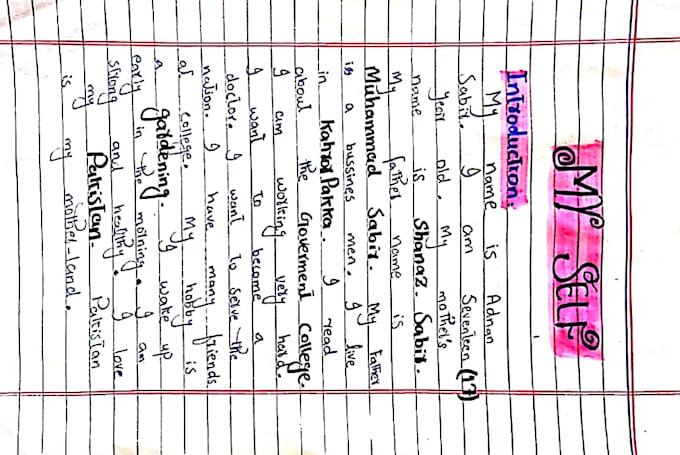 MY SELF
Introduction:
My name is Adnan
Sabir. I am Seventeen (17)
year old. My mother's
name is Shanaz Sabir.
My father name is
Muhammad Sabir. My Father
is a bussines men. I live
in Kahror Pakka. I read
about the Goverment College.
I am working very hard.
I want to become a
doctor. I want to serve the
nation. I have many friends
at college. My hobby is
a gardening. I wake up
early in the morning. I am
strong and healthy. I love
my Pakistan. Pakistan
is my mother-land.